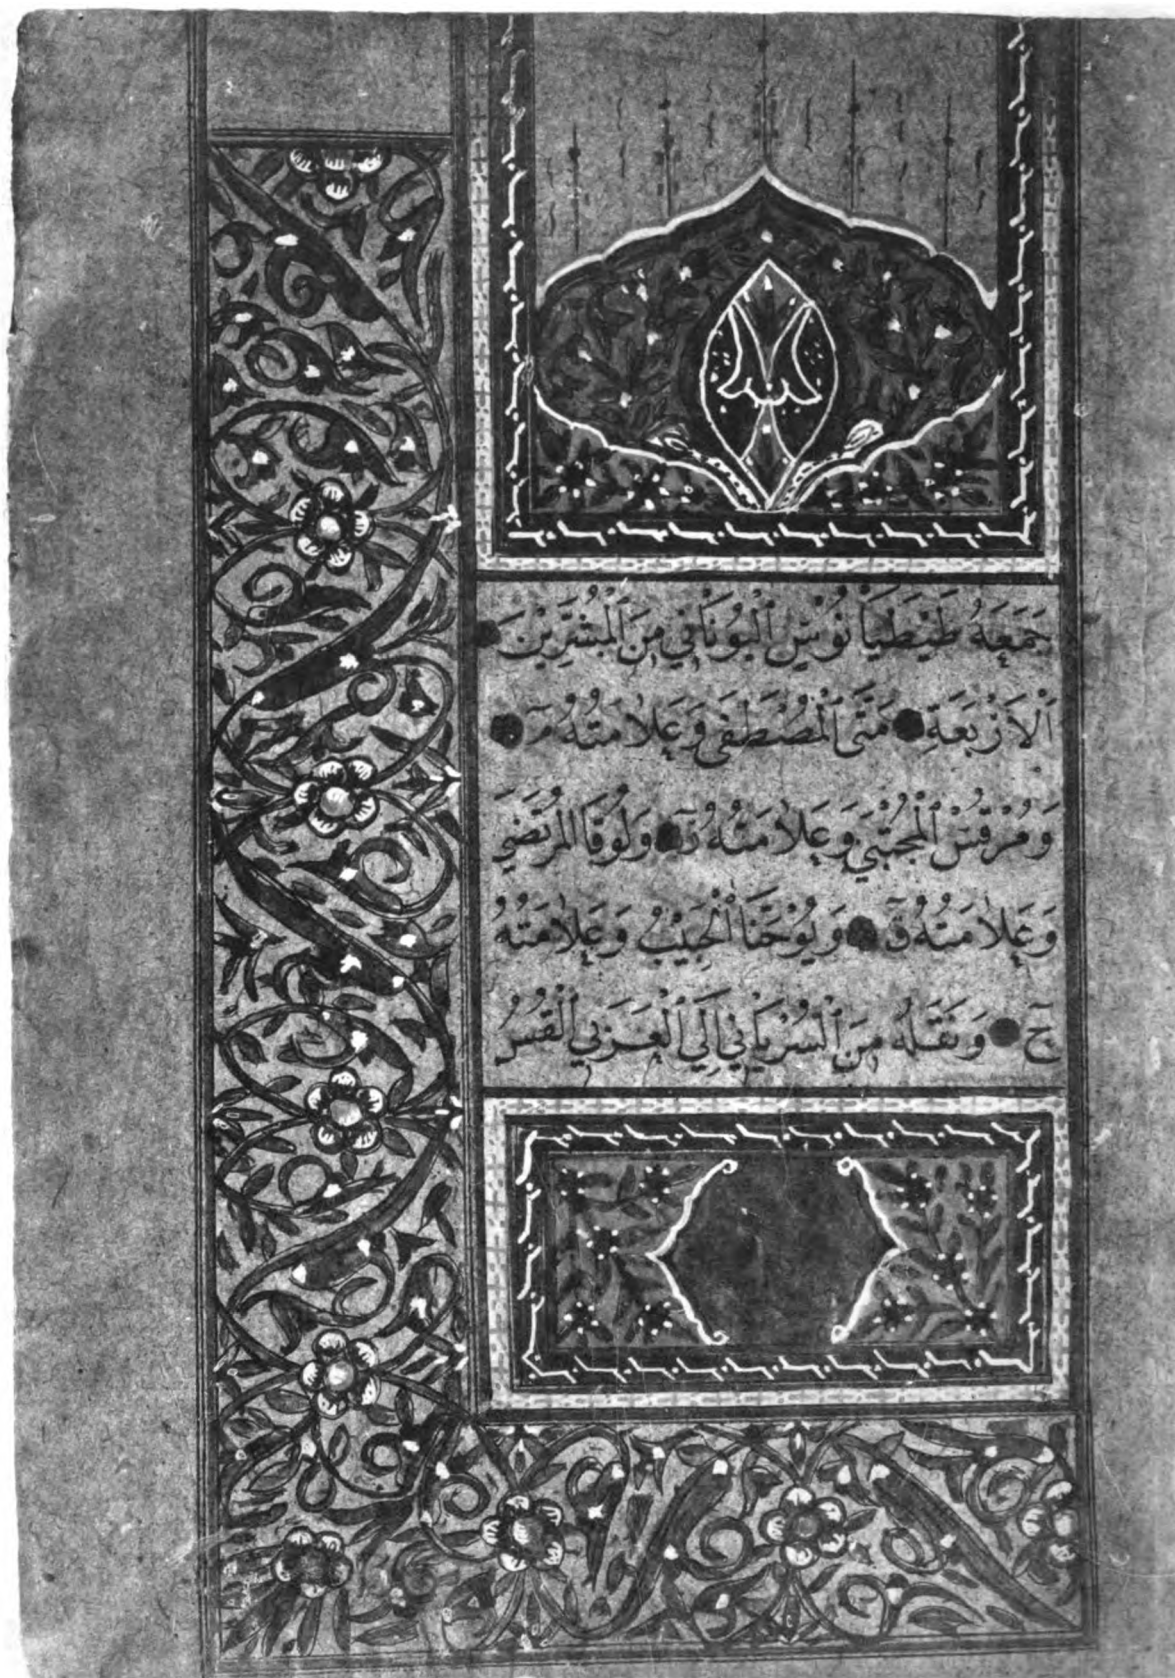 جَمَعَهُ طَيْطَيَانُوْسُ ٱلْيُوْنَانِي مِنَ ٱلْمُبَشِّرِيْنَ
ٱلْاَرْبَعَةِ ● مَتَّى ٱلْمُصْطَفَى وَعَلَامَتُهُ مـ ●
وَمُرْقُسْ ٱلْمُجْتَبَي وَعَلَامَتُهُ رٓ ● وَلُوْقَا ٱلمُرْتَضَي
وَعَلَامَتُهُ قٓ ● وَيُوْحَنَّا ٱلْحَبِيْبُ وَعَلَامَتُهُ
حٓ ● وَنَقَلَهُ مِنَ ٱلسُّرْيَانِي اِلَي ٱلْعَرَبِي ٱلْقِسُّ